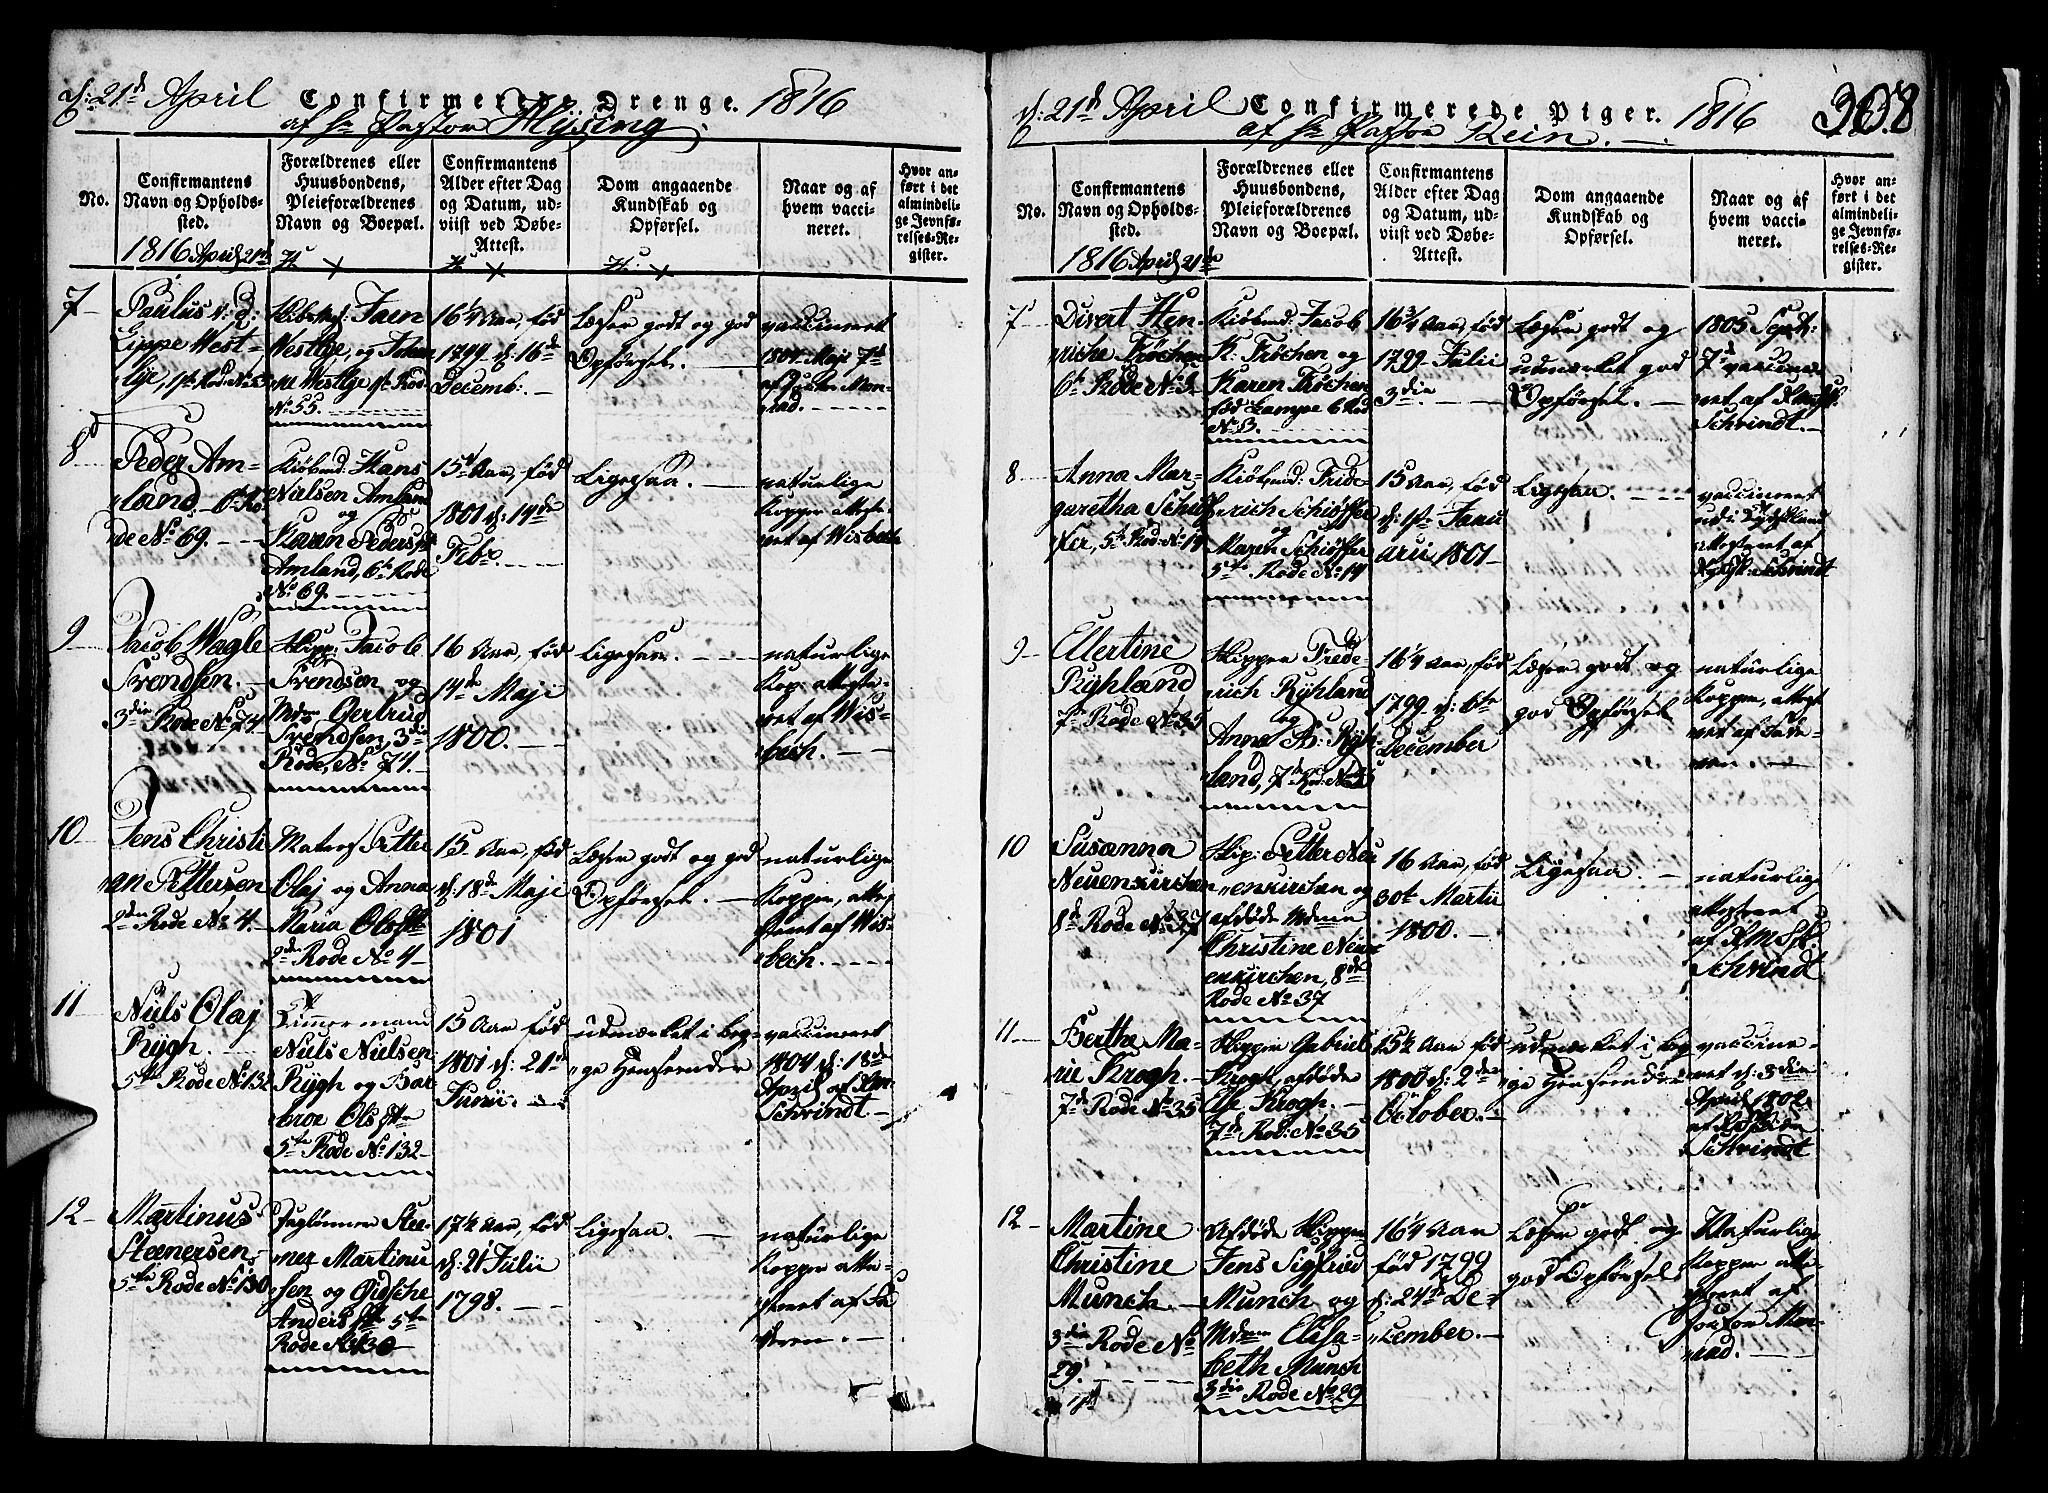 d: 21d April Confirmerede Drenge. 1816
af Hr Pastor Hysing
No.
Confirmantens
Navn og Opholds-
sted.
1816 April 21de
Forældrenes eller
Huusbondens,
Pleieforældrenes
Navn og Boepæl.
Confirmantens
Alder efter Dag
og Datum, ud-
viist ved Døbe-
Attest.
Dom angaaende
Kundskab og
Opførsel.
Naar og af
hvem vacci-
neret.
Hvor an-
ført i det
almindeli-
ge Jevnfø-
relses-Re-
gister.
7
Paulus v: d:
Lippe West-
lye, 1ste Rode No 55
Westlye, og
Westlye 1ste Rod
No 55.
16¼ Aar, fød
1799 d: 16de
Decemb:
Læser godt og god
Opførsel.
vaccineret
1804 Maji 7d
8
Peder Am-
land 6te Ro
de No 69.
Kiøbmd: Hans
Nielsen Amland
og
Karen Peders
Amland, 6te Rode
No 69.
15 Aar, fød
1801 d: 14de
Febr.
Ligesaa.
naturlige
Kopper atteste-
ret af Wisbech
9
Jacob Wagle
Svendsen.
3die Rode No 74
Skipp: Jacob
Svendsen og
Mdm Gertrud
Svendsen, 3die
Rode, No 74.
16 Aar, fød
14de Maji
1800.
Ligesaa.
naturlige
Kop: atteste-
ret af Wis-
bech.
10
Jens Christi
an Pettersen
2den Rode No 4.
Matros Petter
Olaj og Anna
Maria Olsdtr
2de Rode No 4
15 Aar, fød
d: 18de Maji
1801
Læser godt og god
Opførsel.
naturlige
Kopper, atte-
steret af Wis-
bech.
11
Niels Olaj
Rygh.
5te Rode No 132
Timmermand
Niels Nielsen
Rygh og Bar
broe Olsdtr
5te Rode No 132
15 Aar fød
1801 d: 21de
Junii.
udmærket i beg-
ge Henseender
vaccineret
1804 d: 18de
April af
Schvindt
12
Martinus
Steenersen,
5te Rode No 130
Daglønner Stee-
ner Martinu
sen og Gidsche
Andersdtr 5te
Rode No 130
17½ Aar, fød
d: 21 Julii
1798.
Ligesaa.
naturlige
Kopper atte-
steret af Ta
veren.
d: 21d April Confirmerede Piger. 1816 308
af Hr Pastor Rein.
No.
Confirmantens
Navn og Opholds-
sted.
1816 April 21de
Forældrenes eller
Huusbondens,
Pleieforældrenes
Navn og Boepæl.
Confirmantens
Alder efter Dag
og Datum, ud-
viist ved Døbe-
Attest.
Dom angaaende
Kundskab og
Opførsel.
Naar og af
hvem vacci-
neret.
Hvor an-
ført i det
almindeli-
ge Jevnfø-
relses-Re-
gister.
7
Divert Hen-
riche Trøchen
6te Rode No 3.
Kiøbmd: Jacob
K: Trøchen og
Karen Trøchen
fød Lampe 6 Rod
No 3.
16¾ Aar, fød
1799 Julii
3die
Læser godt og
udmærket god
Opførsel.
1805 Septr:
7d vaccine
ret af
Schvindt.
8
Anna Mar-
garetha Schiøf
fer, 5te Rod: No 14
Kiøbmd: Fride-
rich Schiøffer
og
Maren Schiøffer
5te Rode No 14
15 Aar, fød
d: 1ste Janu
arii 1801
Ligesaa.
vaccineret
ud i Tydskland
attesteret af
Schvindt
9
Ellertine
Ryhland
7de Rode No 35
Skipper Frede-
rich Ryhland
og
Anna B: Ryh
land, 7de Rod. No 35
16¼ Aar, fød
1799 d: 6te
December
Læser godt og
god Opførsel
naturlige
Kopper, attest
ret af Tave-
ren.
10
Susanna
Neuenkirchen
8de Rode No 37
Skip: Petter Neu
enkirchen og
afdøde Mdme
Christine Neu
enkirchen, 8de
Rode No 37
16 Aar, fød
30te Martii
1800.
Ligesaa.
naturlige
attesteret
af
Schvindt
11
Berthe Ma-
rie Krogh.
7de Rode No 35
Skipper Gabriel
Krogh, afdøde
Else Krogh.
7de Rod: No 35
15½ Aar fød
1800 d: 2den
October.
udmærket i beg
ge Henseender
vaccine-
ret d: 3die
April 1802
af
Schvindt
12
Martine
Christine
Munch.
3die Rode No
29.
Afdøde Skipper
Jens Sigfried
Munch og
Mdme Elisa-
beth Munch
3die Rode No 29
16¼ Aar
fød 1799
d: 24de De-
cember.
Læser godt og
god Opførsel
Naturlige
Kopper atte-
steret af